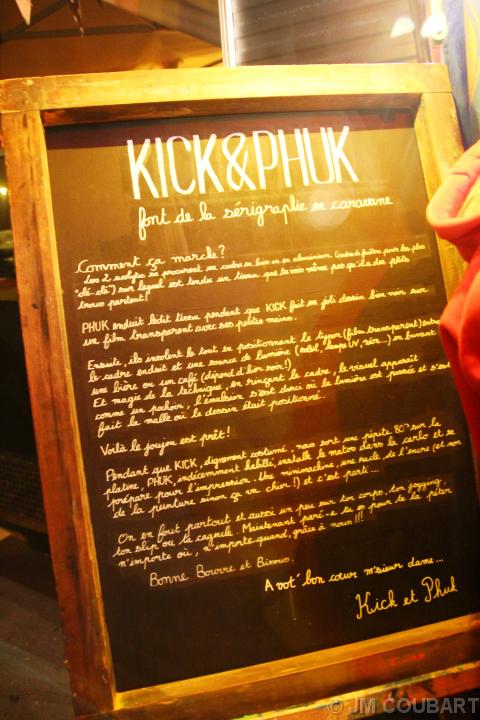 KICK&PHUK
font de la sérigraphie en caravane
Comment ça marche?
Les 2 acolytes se procurent un cadre en bois ou en aluminium (cadre de fenêtre pour les plus
"clé-clé") sur lequel est tendu un tissu que tu vois même pas qu'il a des ptits
trous partout!
PHUK enduit ledit tissu pendant que KICK fait un joli dessin bien noir sur
un film transparent avec ses petites mains.
Ensuite, ils insolent le tout en positionnant le typon (film transparent) entre
le cadre enduit et une source de lumière (soleil, lampe UV, néon...) en buvant
une bière ou un café (dépend d'bon soir!)
Et magie de la technique, en rinçant le cadre, le visuel apparaît
comme un pochoir, l'émulsion s'est durci où la lumière est passée et s'est
fait la malle où le dessin était positionné.
Voilà le joujou est prêt!
Pendant que KICK, dignement costumé, nous sort une pépite 80's sur la
platine, PHUK, indécemment habillé, installe le matos dans la carlo et se
prépare pour l'impression. Une minimachine, une racle de l'encre (et non
de la peinture sinon ça va chier!) et c'est parti...
On en fout partout et aussi un peu sur ton corps, ton jogging,
ton slip ou ta cagoule. Maintenant pare-e à se pour te la péter
n'importe où, n'importe quand, grâce à nous!!!
Bonne Bourre et Bisous.
A vot' bon cœur m'sieur dame...
Kick et Phuk
© JM COUBART